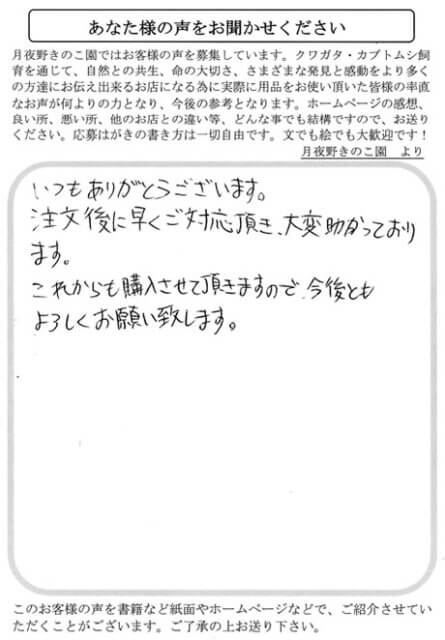 あなた様の声をお聞かせください
月夜野きのこ園ではお客様の声を募集しています。クワガタ・カブトムシ飼
育を通じて、自然との共生、命の大切さ、さまざまな発見と感動をより多く
の方達にお伝え出来るお店になる為に実際に用品をお使い頂いた皆様の率直
なお声が何よりの力となり、今後の参考となります。ホームページの感想、
良い所、悪い所、他のお店との違い等、どんな事でも結構ですので、お送り
ください。応募はがきの書き方は一切自由です。文でも絵でも大歓迎です！
月夜野きのこ園　より
いつもありがとうございます。
注文後に早くご対応頂き、大変助かっており
ます。
これからも購入させて頂きますので、今後とも
よろしくお願い致します。
このお客様の声を書籍など紙面やホームページなどで、ご紹介させてい
ただくことがございます。ご了承の上お送り下さい。